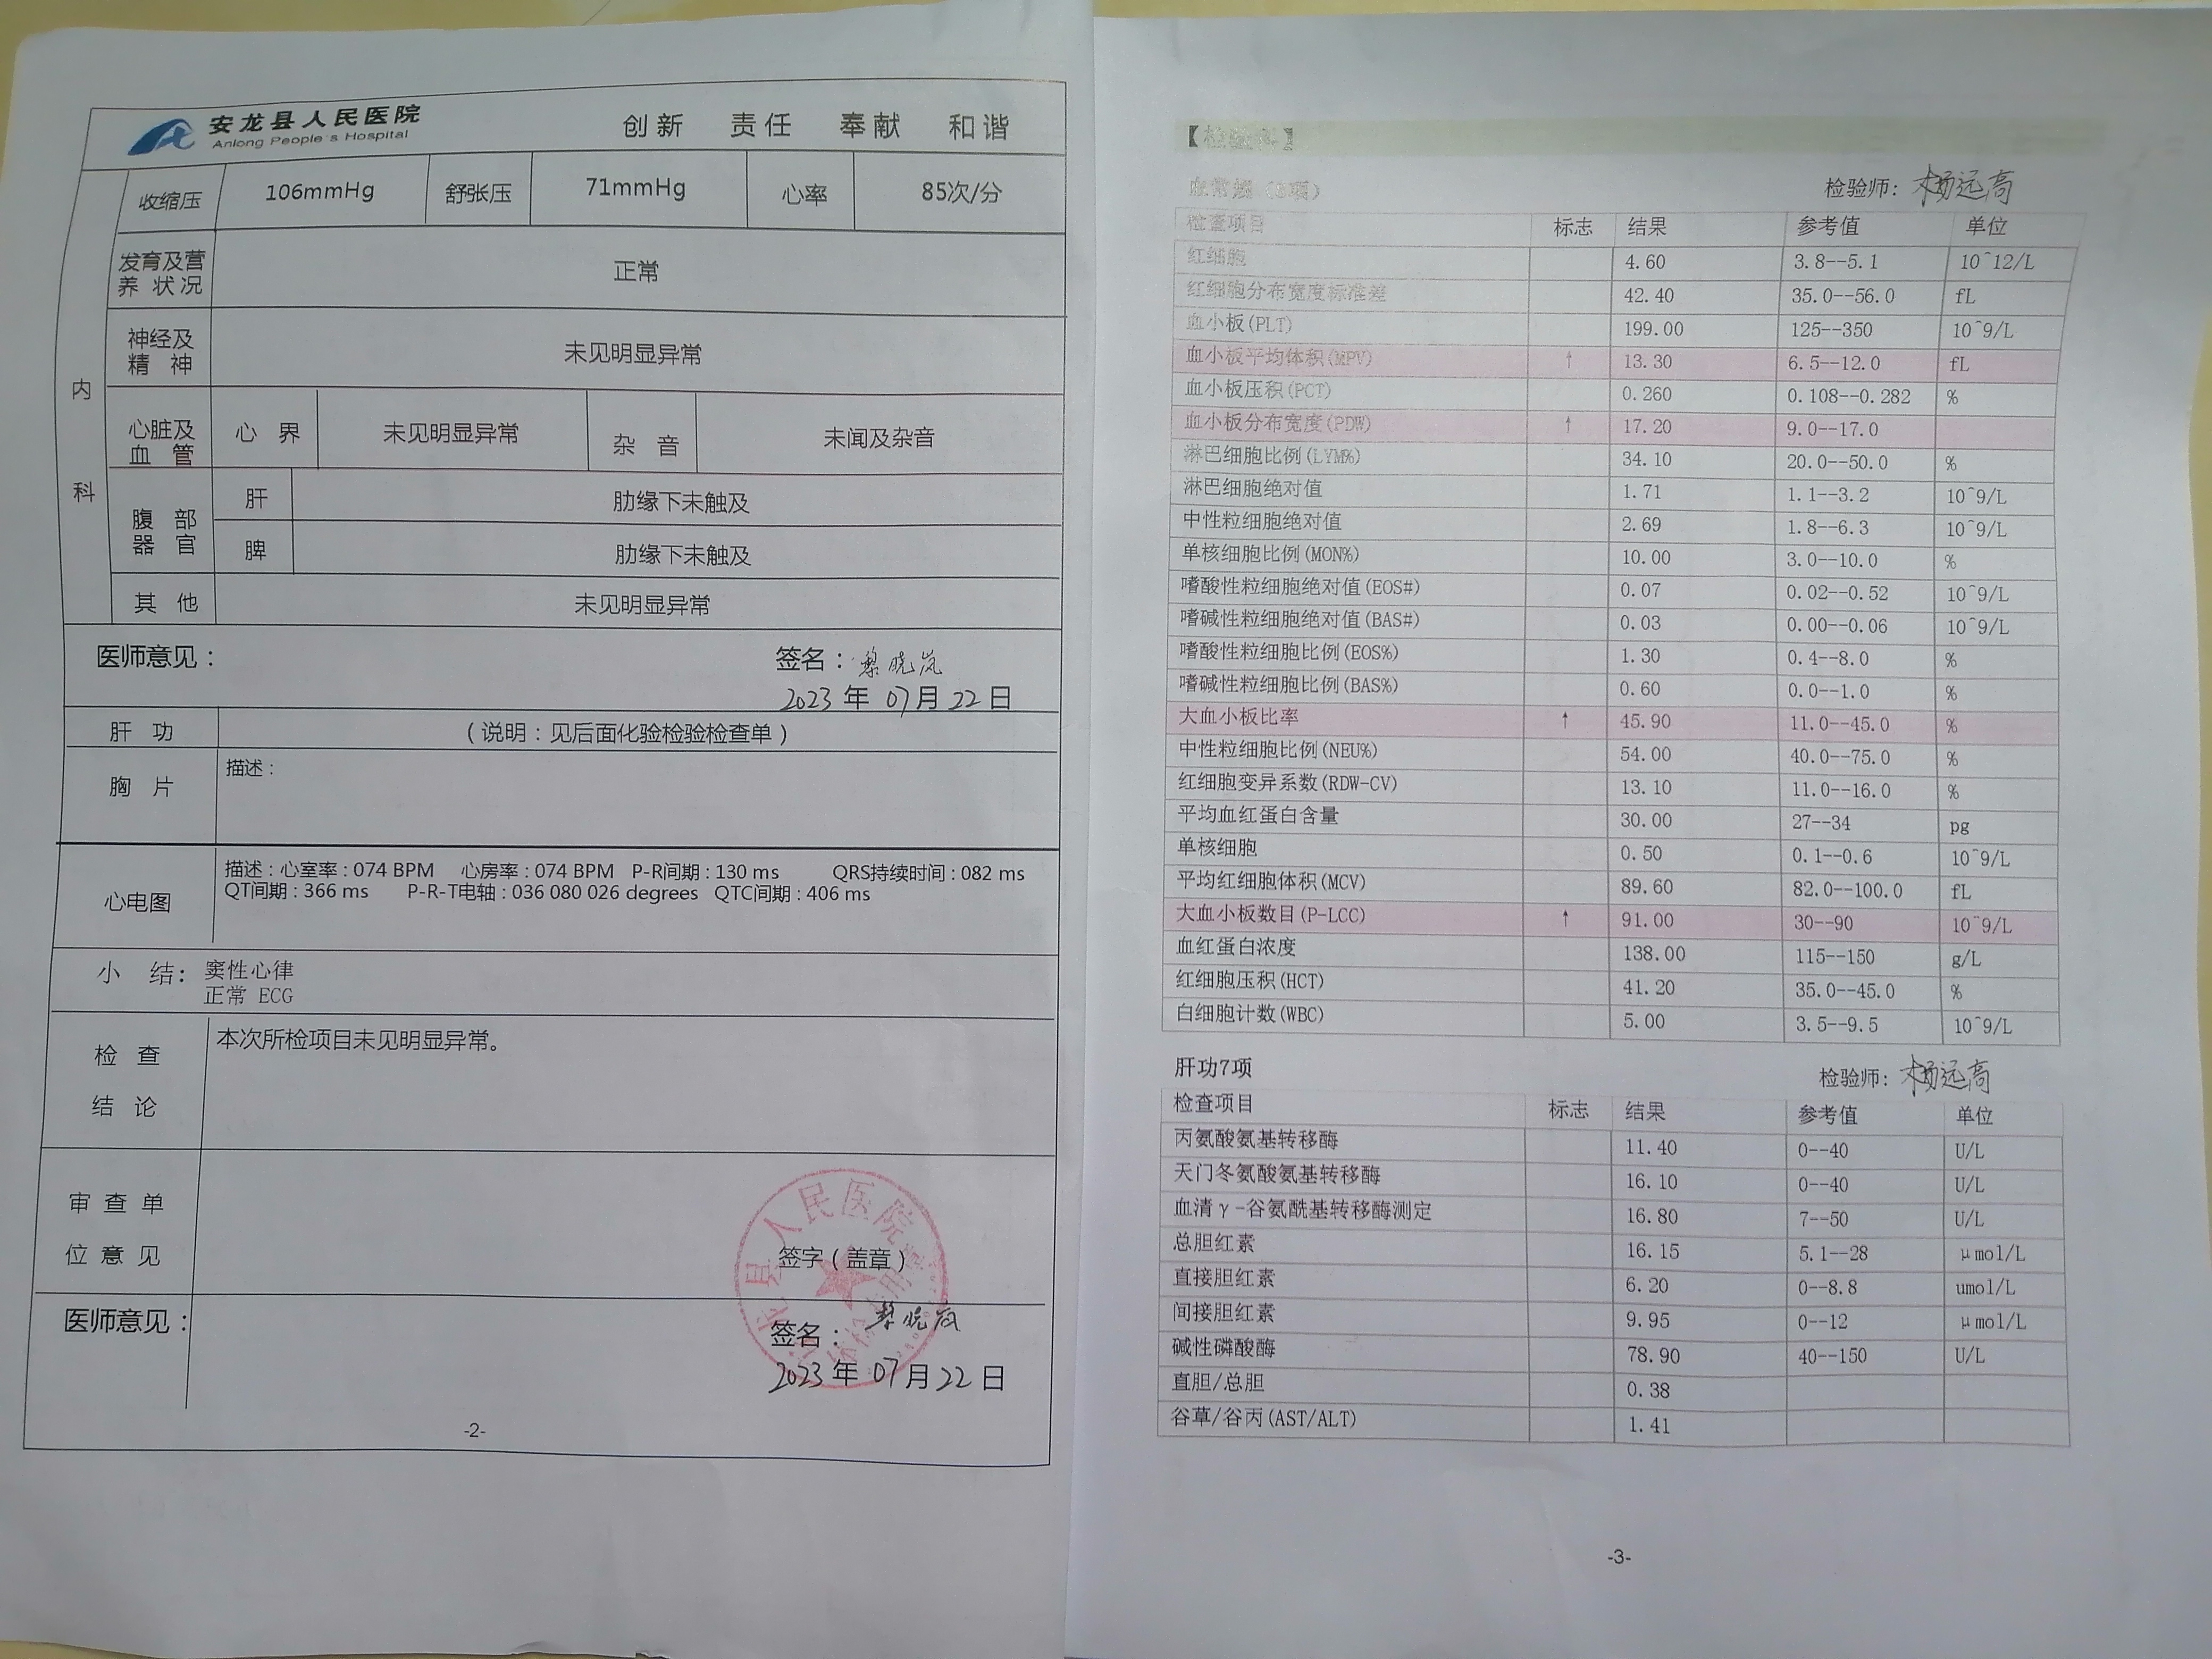 安龙县人民医院 创新 责任 奉献 和谐
Anlong People's Hospital
内科
收缩压 106mmHg 舒张压 71mmHg 心率 85次/分
发育及营养状况 正常
神经及精神 未见明显异常
心脏及血管 心界 未见明显异常 杂音 未闻及杂音
腹部器官 肝 肋缘下未触及
脾 肋缘下未触及
其他 未见明显异常
医师意见： 签名：黎晓岚
2023年07月22日
肝功 （说明：见后面化验检验检查单）
胸片 描述：
心电图 描述：心室率：074 BPM 心房率：074 BPM P-R间期：130 ms QRS持续时间：082 ms
QT间期：366 ms P-R-T电轴：036 080 026 degrees QTC间期：406 ms
小结：窦性心律
正常 ECG
检查结论 本次所检项目未见明显异常。
审查单位意见 签字（盖章）
县人民医院
医师意见： 签名：黎晓岚
2023年07月22日
-2-
【检验科】
检验师：杨远高
检查项目 标志 结果 参考值 单位
红细胞 4.60 3.8--5.1 10^12/L
红细胞分布宽度标准差 42.40 35.0--56.0 fL
血小板(PLT) 199.00 125--350 10^9/L
血小板平均体积(MPV) ↑ 13.30 6.5--12.0 fL
血小板压积(PCT) 0.260 0.108--0.282 %
血小板分布宽度(PDW) ↑ 17.20 9.0--17.0
淋巴细胞比例(LYM%) 34.10 20.0--50.0 %
淋巴细胞绝对值 1.71 1.1--3.2 10^9/L
中性粒细胞绝对值 2.69 1.8--6.3 10^9/L
单核细胞比例(MON%) 10.00 3.0--10.0 %
嗜酸性粒细胞绝对值(EOS#) 0.07 0.02--0.52 10^9/L
嗜碱性粒细胞绝对值(BAS#) 0.03 0.00--0.06 10^9/L
嗜酸性粒细胞比例(EOS%) 1.30 0.4--8.0 %
嗜碱性粒细胞比例(BAS%) 0.60 0.0--1.0 %
大血小板比率 ↑ 45.90 11.0--45.0 %
中性粒细胞比例(NEU%) 54.00 40.0--75.0 %
红细胞变异系数(RDW-CV) 13.10 11.0--16.0 %
平均血红蛋白含量 30.00 27--34 pg
单核细胞 0.50 0.1--0.6 10^9/L
平均红细胞体积(MCV) 89.60 82.0--100.0 fL
大血小板数目(P-LCC) ↑ 91.00 30--90 10^9/L
血红蛋白浓度 138.00 115--150 g/L
红细胞压积(HCT) 41.20 35.0--45.0 %
白细胞计数(WBC) 5.00 3.5--9.5 10^9/L
肝功7项 检验师：杨远高
检查项目 标志 结果 参考值 单位
丙氨酸氨基转移酶 11.40 0--40 U/L
天门冬氨酸氨基转移酶 16.10 0--40 U/L
血清γ-谷氨酰基转移酶测定 16.80 7--50 U/L
总胆红素 16.15 5.1--28 μmol/L
直接胆红素 6.20 0--8.8 umol/L
间接胆红素 9.95 0--12 μmol/L
碱性磷酸酶 78.90 40--150 U/L
直胆/总胆 0.38
谷草/谷丙(AST/ALT) 1.41
-3-